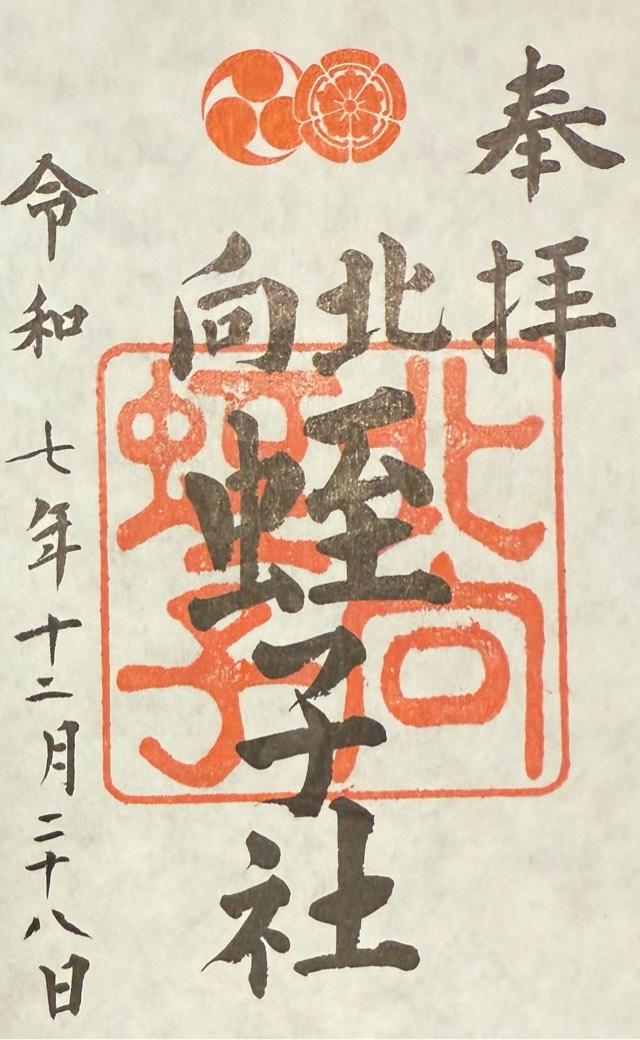 奉拝
北向
蛭子社
令和七年十二月二十八日
北向
蛭子